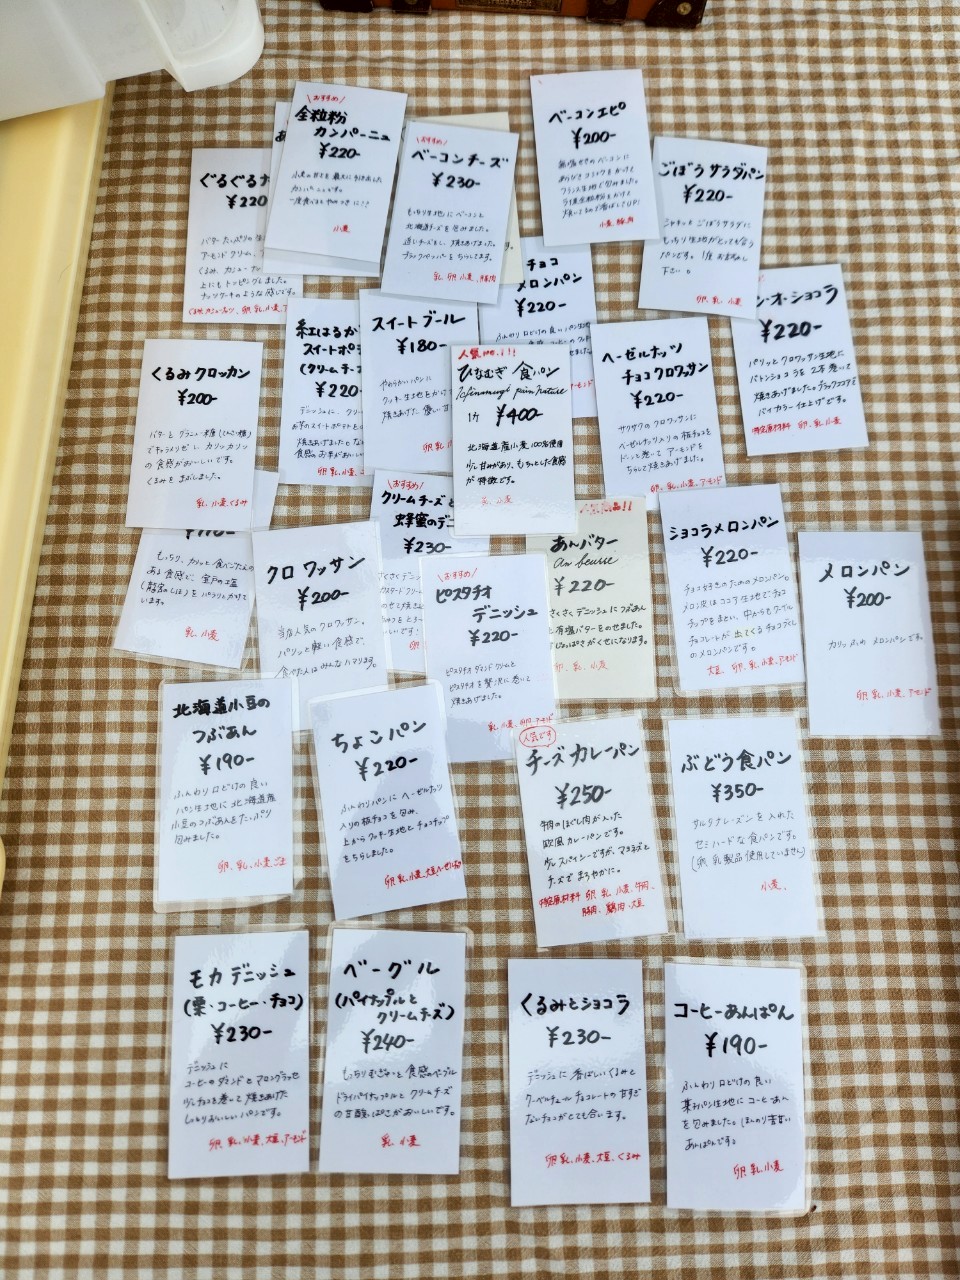 \おすすめ/
全粒粉
カンパーニュ
¥220-
小麦の甘さを最大に引き出した
カンパーニュです。
一度食べるとやみつきに!?
小麦
\おすすめ/
ベーコンチーズ
¥230-
もっちり生地にベーコンと
北海道チーズを包みました。
追いチーズをし、焼きあげました。
ブラックペッパーをちらしてます。
乳、卵、小麦、豚肉
ベーコンエピ
¥200-
小麦、豚肉
ごぼうサラダパン
¥220-
シャキシャキ ごぼうサラダに
もっちり生地がとっても合う
パンです。1度お試し
下さい。
卵、乳、小麦
ぐるぐるナ
¥220
バターたっぷりの生
アーモンドクリーム、
くるみ、カシューナッ
上にもトッピングしました。
ナッツケーキのような感じです。
チョコ
メロンパン
¥220-
ン・オ・ショコラ
¥220-
パリッとクロワッサン生地に
バトンショコラを2本巻いて
焼きあげました。ブラックココアで
バイカラー仕上げです。
特定原材料 卵、乳、小麦
紅はるか
スイートポテ
(クリームチー
¥220-
スイートブール
¥180-
やわらかいパンに
クッキー生地をかけて
ひなむぎ 食パン
1ケ ¥400-
北海道産小麦100%使用
少し甘みがあり、もちっとした食感
が特徴です。
乳、小麦
ヘーゼルナッツ
チョコクロワッサン
¥220-
サクサクのクロワッサンに
ヘーゼルナッツ入りの板チョコを
ドーンと巻いて アーモンドを
ちらして焼きあげました。
卵、乳、小麦、アーモンド
くるみクロッカン
¥200-
バターとグラニュー糖(てんさい糖)
でキャラメリゼし、カリッカリッ
の食感がおいしいです。
くるみをまぶしました。
乳、小麦、くるみ
もっちり、カリッと食べごたえの
ある食感で、室戸の塩
います。
乳、小麦
クロワッサン
¥200-
当店人気のクロワッサン。
パリッと軽い食感で、
食べた人はみんなハマります。
\おすすめ/
クリームチーズと
蜂蜜のデニ
¥230-
\おすすめ/
ピスタチオ
デニッシュ
¥220-
ピスタチオダマンドクリームと
ピスタチオを贅沢に巻いて
焼きあげました。
乳、小麦、卵、アーモンド
あんバター
An beurre
¥220-
さくさくデニッシュにつぶあん
と有塩バターをのせました。
卵、乳、小麦
ショコラメロンパン
¥220-
チョコ好きのためのメロンパン。
メロン皮はココア生地でチョコ
チップをまとい、中からもクーベル
チョコレートが出てくるチョコづくし
のメロンパンです。
大豆、卵、乳、小麦、アーモンド
メロンパン
¥200-
カリッ、ふわ メロンパンです。
卵、乳、小麦、アーモンド
北海道小豆の
つぶあん
¥190-
ふんわり口どけの良い
パン生地に北海道産
小豆のつぶあんをたっぷり
包みました。
卵、乳、小麦、ごま
ちょこパン
¥220-
ふんわりパンにヘーゼルナッツ
入りの板チョコを包み、
上からクッキー生地とチョコチップ
をちらしました。
卵、乳、小麦、大豆、ヘーゼルナッツ
人気です
チーズカレーパン
¥250-
牛肉のほぐし肉が入った
欧風カレーパンです。
少しスパイシーですが、マヨネーズと
チーズでまろやかに。
特定原材料 卵、乳、小麦、牛肉、
豚肉、鶏肉、大豆
ぶどう食パン
¥350-
サルタナレーズンを入れた
セミハードな食パンです。
(卵、乳製品使用していません)
小麦、
モカデニッシュ
(栗・コーヒー・チョコ)
¥230-
デニッシュに
コーヒーのダマンドとマロングラッセ
少しチョコを巻いて焼きあげた
しっとりおいしいパンです。
卵、乳、小麦、大豆、アーモンド
ベーグル
(パイナップルと
クリームチーズ)
¥240-
もっちりむぎゅっと食感のベーグル
ドライパイナップルとクリームチーズ
の甘酸っぱさがおいしいです。
乳、小麦
くるみとショコラ
¥230-
デニッシュに香ばしいくるみと
クーベルチュールチョコレートの甘すぎ
ないチョコがとても合います。
卵、乳、小麦、大豆、くるみ
コーヒーあんぱん
¥190-
ふんわり口どけの良い
菓子パン生地にコーヒーあん
を包みました。ほんのり苦甘い
あんぱんです。
卵、乳、小麦